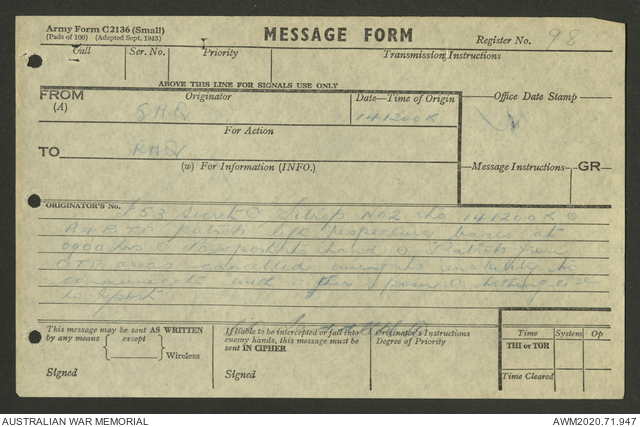 Army Form C2136 (Small)
(Pads of 100) (Adapted Sept. 1943)
MESSAGE FORM
Register No. 98
Call
Ser. No.
Priority
Transmission Instructions
ABOVE THIS LINE FOR SIGNALS USE ONLY
FROM
(A)
Originator
Date—Time of Origin
Office Date Stamp
141200K
For Action
TO
(w) For Information (INFO.)
Message Instructions
GR
ORIGINATOR'S No.
Secret Sitrep No2 to 141200K
A & B patrols respective bases at
0900 hrs to hand Patrols from
areas cancelled to
to report
This message may be sent AS WRITTEN
by any means
except
Wireless
Signed
If liable to be intercepted or fall into
enemy hands, this message must be
sent IN CIPHER
Signed
Originator's Instructions
Degree of Priority
Time
System
Op
THI or TOR
Time Cleared
AUSTRALIAN WAR MEMORIAL
AWM2020.71.947